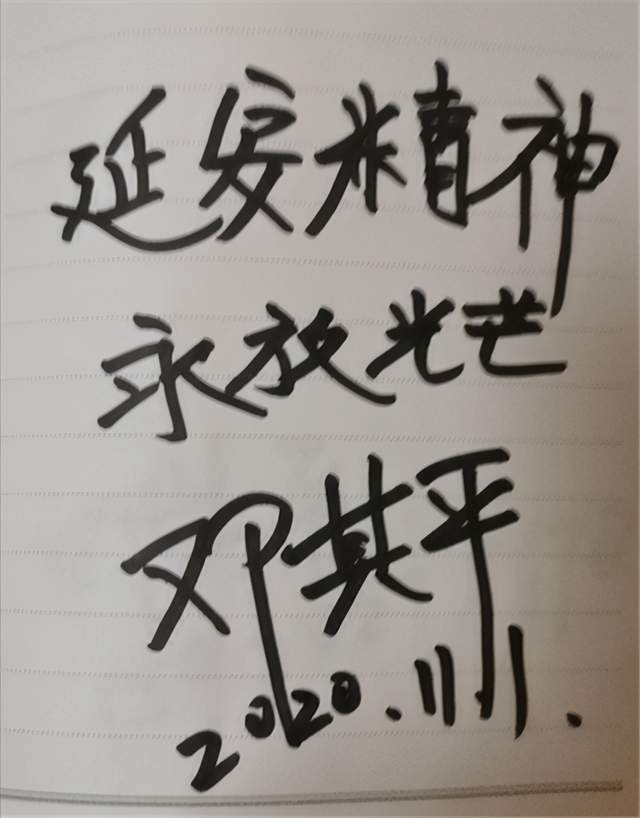 延安精神
永放光芒
邓其平
2020.11.1.